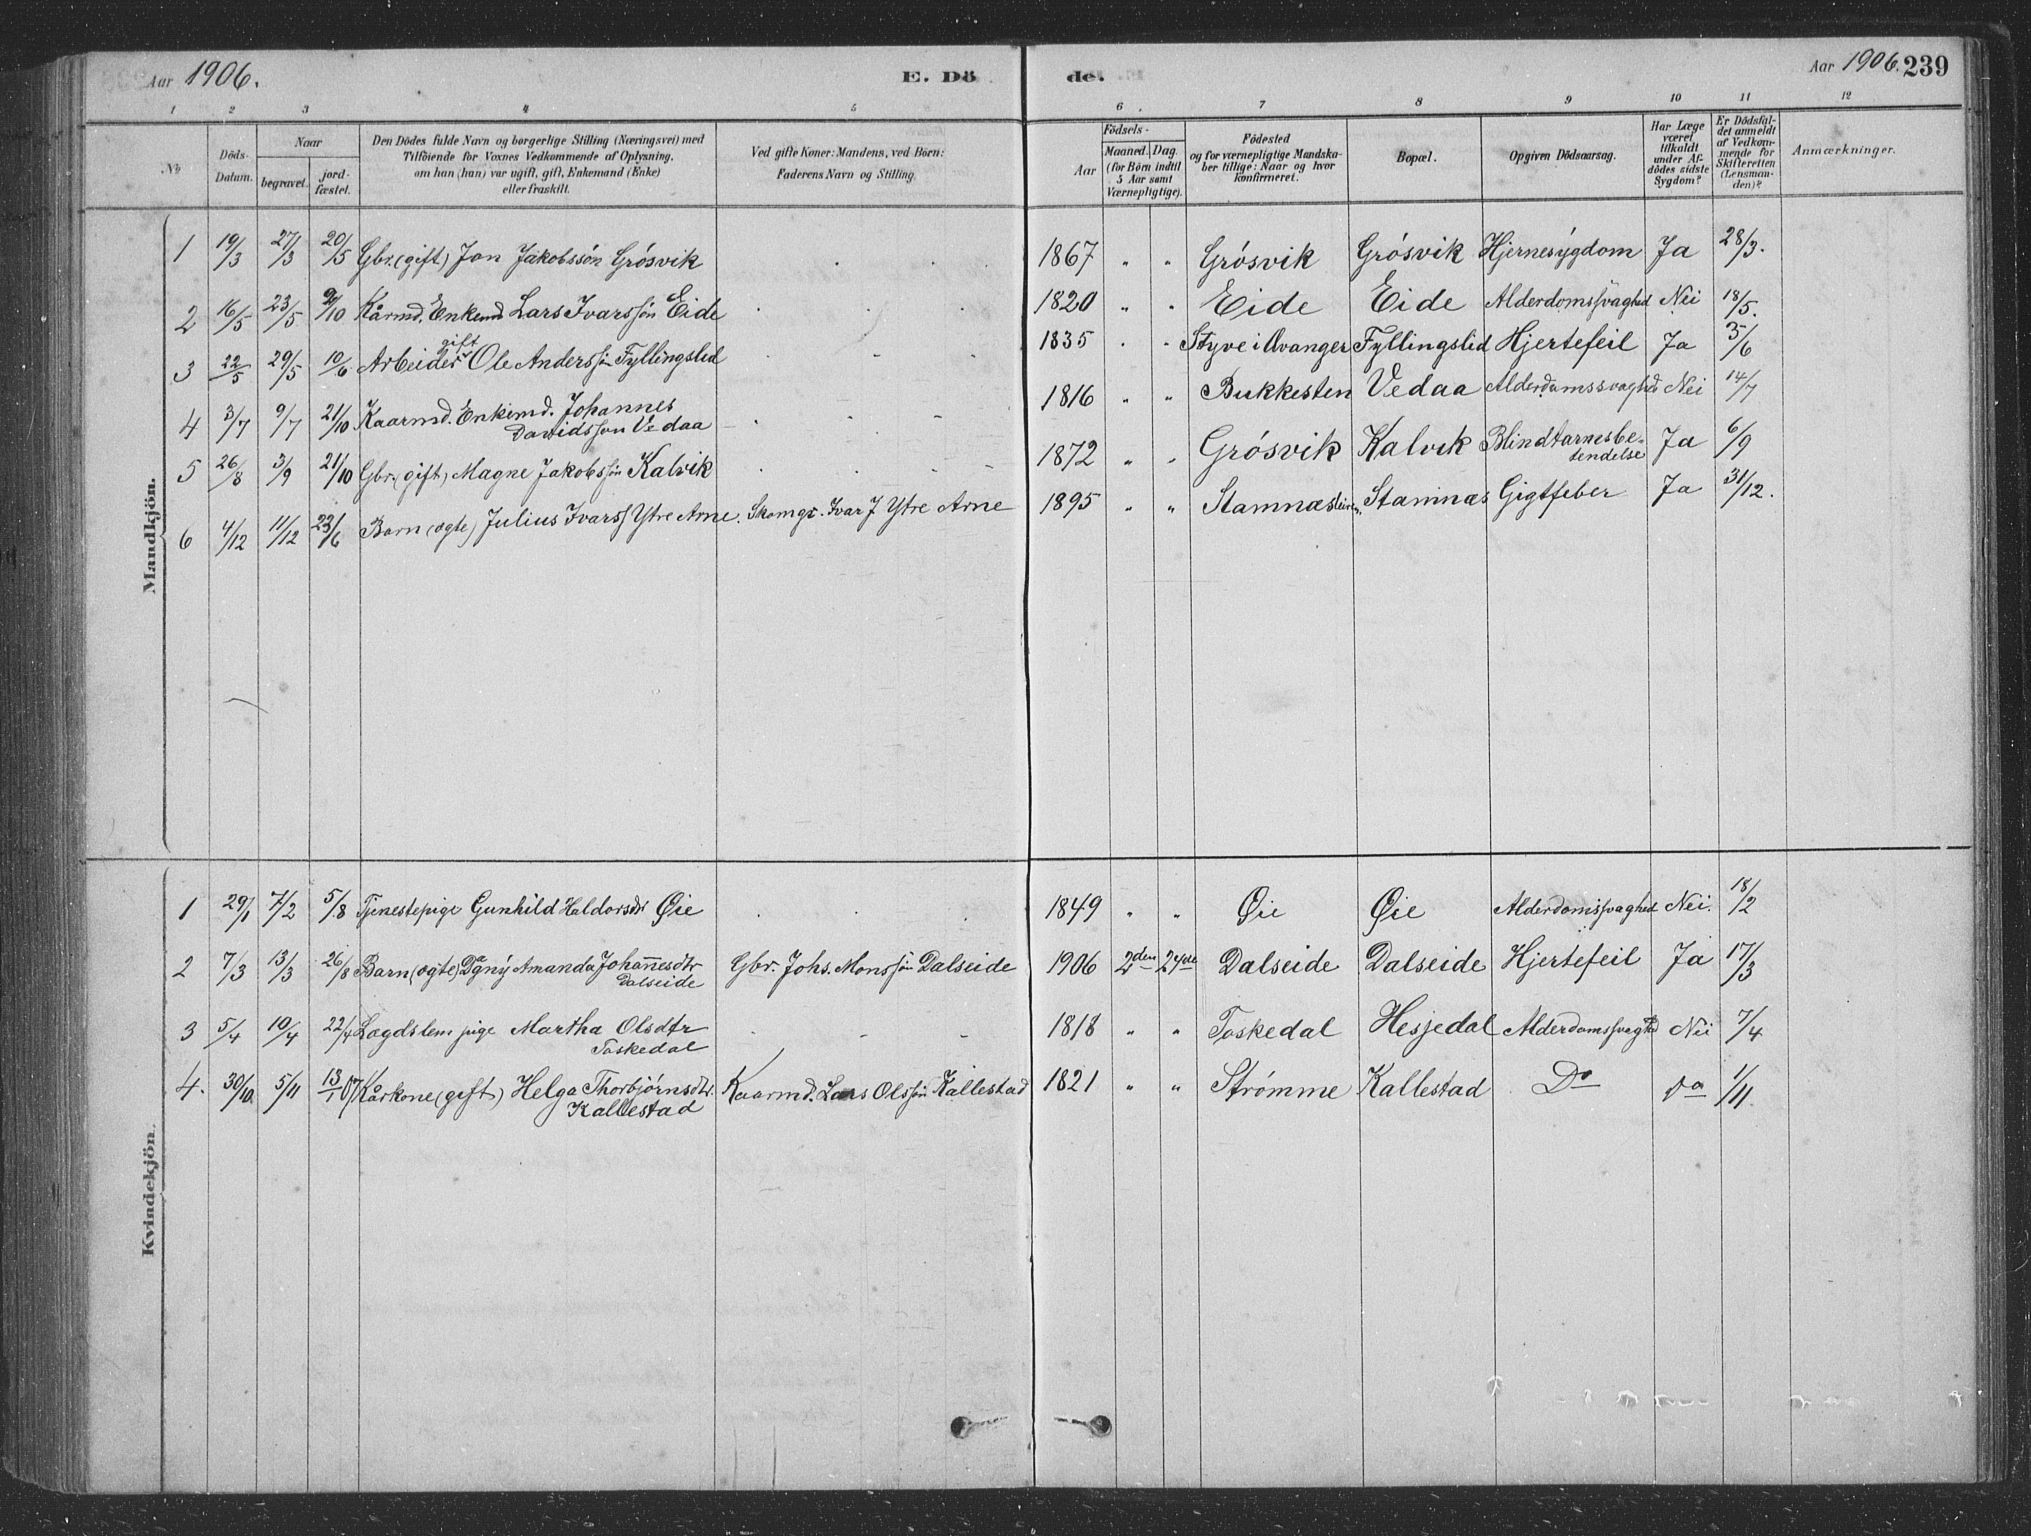 Aar 1906. E. Dö de. Aar 1906. 239
1 2 3 4 5 6 7 8 9 10 11 12
No Döds-Datum. Naar begravet. jordfæstet. Den Dödes fulde Navn og borgerlige Stilling (Næringsvei) med Tilföiende for Voxnes Vedkommende af Oplysning, om han (hun) var ugift, gift, Enkemand (Enke) eller fraskilt. Ved gifte Koner: Mandens, ved Börn: Faderens Navn og Stilling. Födsels- Aar Maaned. Dag. (for Börn indtil 5 Aar samt Værnepligtige). Födested og for værnepligtige Mandskaber tillige: Naar og hvor konfirmeret. Bopæl. Opgiven Dödsaarsag. Har Læge været tilkaldt under Afdödes sidste Sygdom? Er Dödsfaldet anmeldt af Vedkommende for Skifteretten (Lensmanden)? Anmærkninger.
Mandkjön.
1 19/3 27/3 20/5 Gbr. (gift) Jon Jakobssön Grósvik 1867 " " Grósvik Grósvik Hjernesygdom Ja 28/3.
2 16/5 23/5 9/10 Kårmd. Enkemd Lars Ivarssön Eide 1820 " " Eide Eide Alderdomssvaghed Nei 18/5.
3 22/5 29/5 10/6 Arbeider gift Ole Anderssön Fyllingslid 1835 " " Styve i Evanger Fyllingslid Hjertefeil Ja 5/6
4 3/7 9/7 21/10 Kaarmd. Enkemd. Johannes 1816 " " Bukkesten Vedaa Alderdomssvaghed Nei 14/7
Davidsson Vedaa
5 26/8 3/9 21/10 Gbr. (gift) Magne Jakobssön Kalvik 1872 " " Grósvik Kalvik Blindtarmsbe- Ja 6/9
tendelse
6 4/12 11/12 23/6 Barn (ægte) Julius Ivarss Ytre Arne. Skomgr. Ivar J Ytre Arne 1895 " " Stamnes Stamnæs Gigtfeber Ja 31/12.
Kvindekjön.
1 29/1 7/2 5/8 Tjenestepige Gunhild Haldorsdtr Øie 1849 " " Øie Øie Alderdomssvaghed Nei. 18/2
2 7/3 13/3 26/8 Barn (ægte) Dagny Amanda Johannesdtr Gbr. Johs. Monssön Dalseide 1906 2den 24de Dalseide Dalseide Hjertefeil Ja 17/3
Dalseide
3 5/4 10/4 22/4 Lægdslem pige Martha Olsdtr 1818 " " Toskedal Hesjedal Alderdomssvaghed Nei 7/4
Toskedal
4. 30/10 5/11 13/1 07 Kårkone (gift) Helga Thorbjørnsdtr. Kaarmd. Lars Olssön Kallestad 1821 " " Strømme Kallestad Do do 1/11
Kallestad